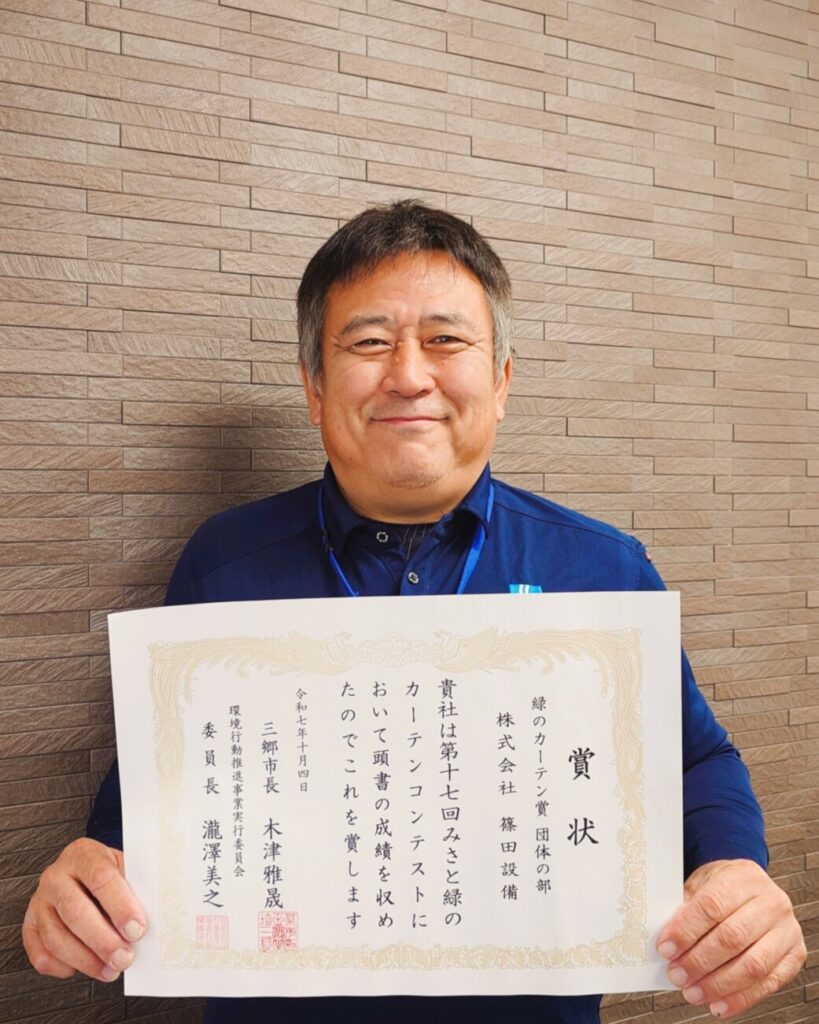 賞状
緑のカーテン賞 団体の部
株式会社 篠田設備
貴社は第十七回みさと緑の
カーテンコンテストに
おいて頭書の成績を収め
たのでこれを賞します
令和七年十月四日
三郷市長 木津雅晟
環境行動推進事業実行委員会
委員長 瀧澤美之